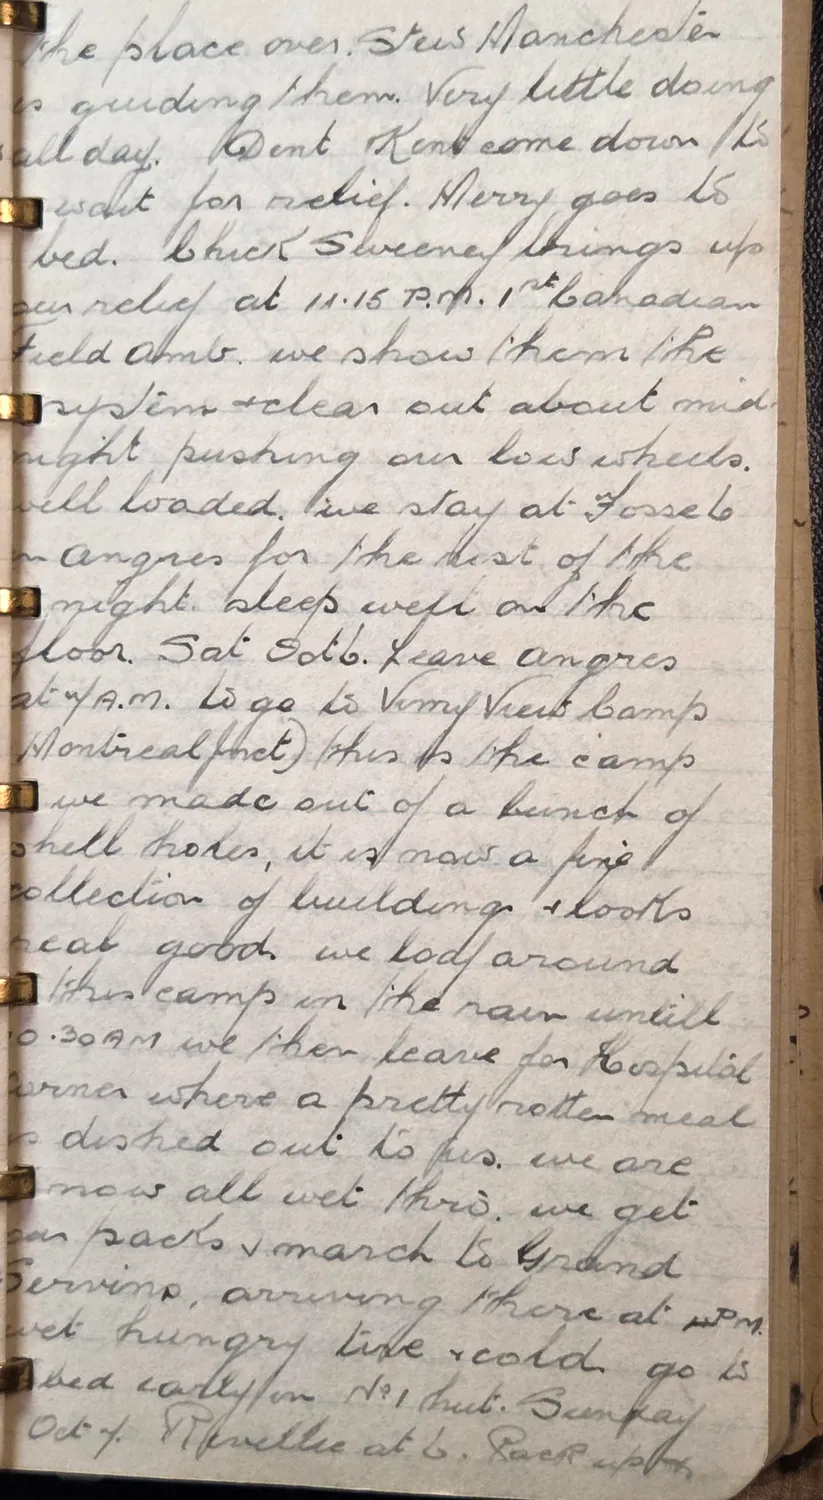 the place over. Stew Manchester
is guiding them. Very little doing
all day. Dent Kent come down to
wait for relief. Merry goes to
bed. Chick Sweeney brings up
our relief at 11.15 P.M. 1st Canadian
Field Amb. we show them the
system + clear out about mid-
night pushing our low wheels.
well loaded. we stay at Fosse 6
in Angres for the rest of the
night. sleep well on the
floor. Sat Oct 6. Leave Angres
at 7 A.M. to go to Vimy View Camp
Montreal ) this is the camp
we made out of a bunch of
shell holes, it is now a fine
collection of building + looks
real good. we loaf around
this camp in the rain untill
10.30 AM we then leave for Hospital
Corner where a pretty rotten meal
is dished out to us. we are
now all wet thro. we get
our packs + march to Grand
Servins, arriving there at P.M.
wet hungry tire + cold. go to
bed early in No 1 hut. Sunday
Oct 7. Revellie at 6. Pack up